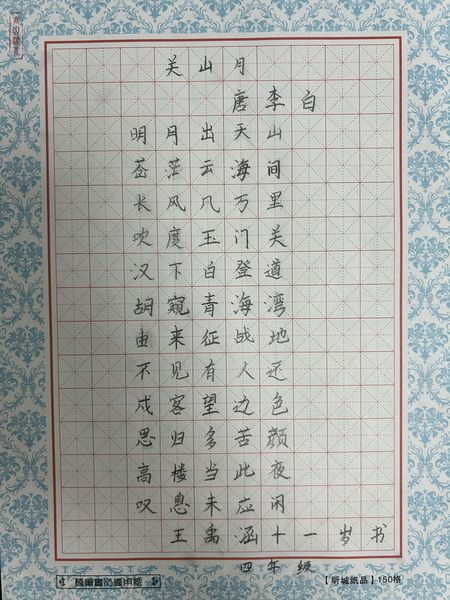 关山月
唐李白
明月出天山
苍茫云海间
长风几万里
吹度玉门关
汉下白登道
胡窥青海湾
由来征战地
不见有人还
戍客望边色
思归多苦颜
高楼当此夜
叹息未应闲
王禹涵十一岁书
四年级
【昕城纸品】150格